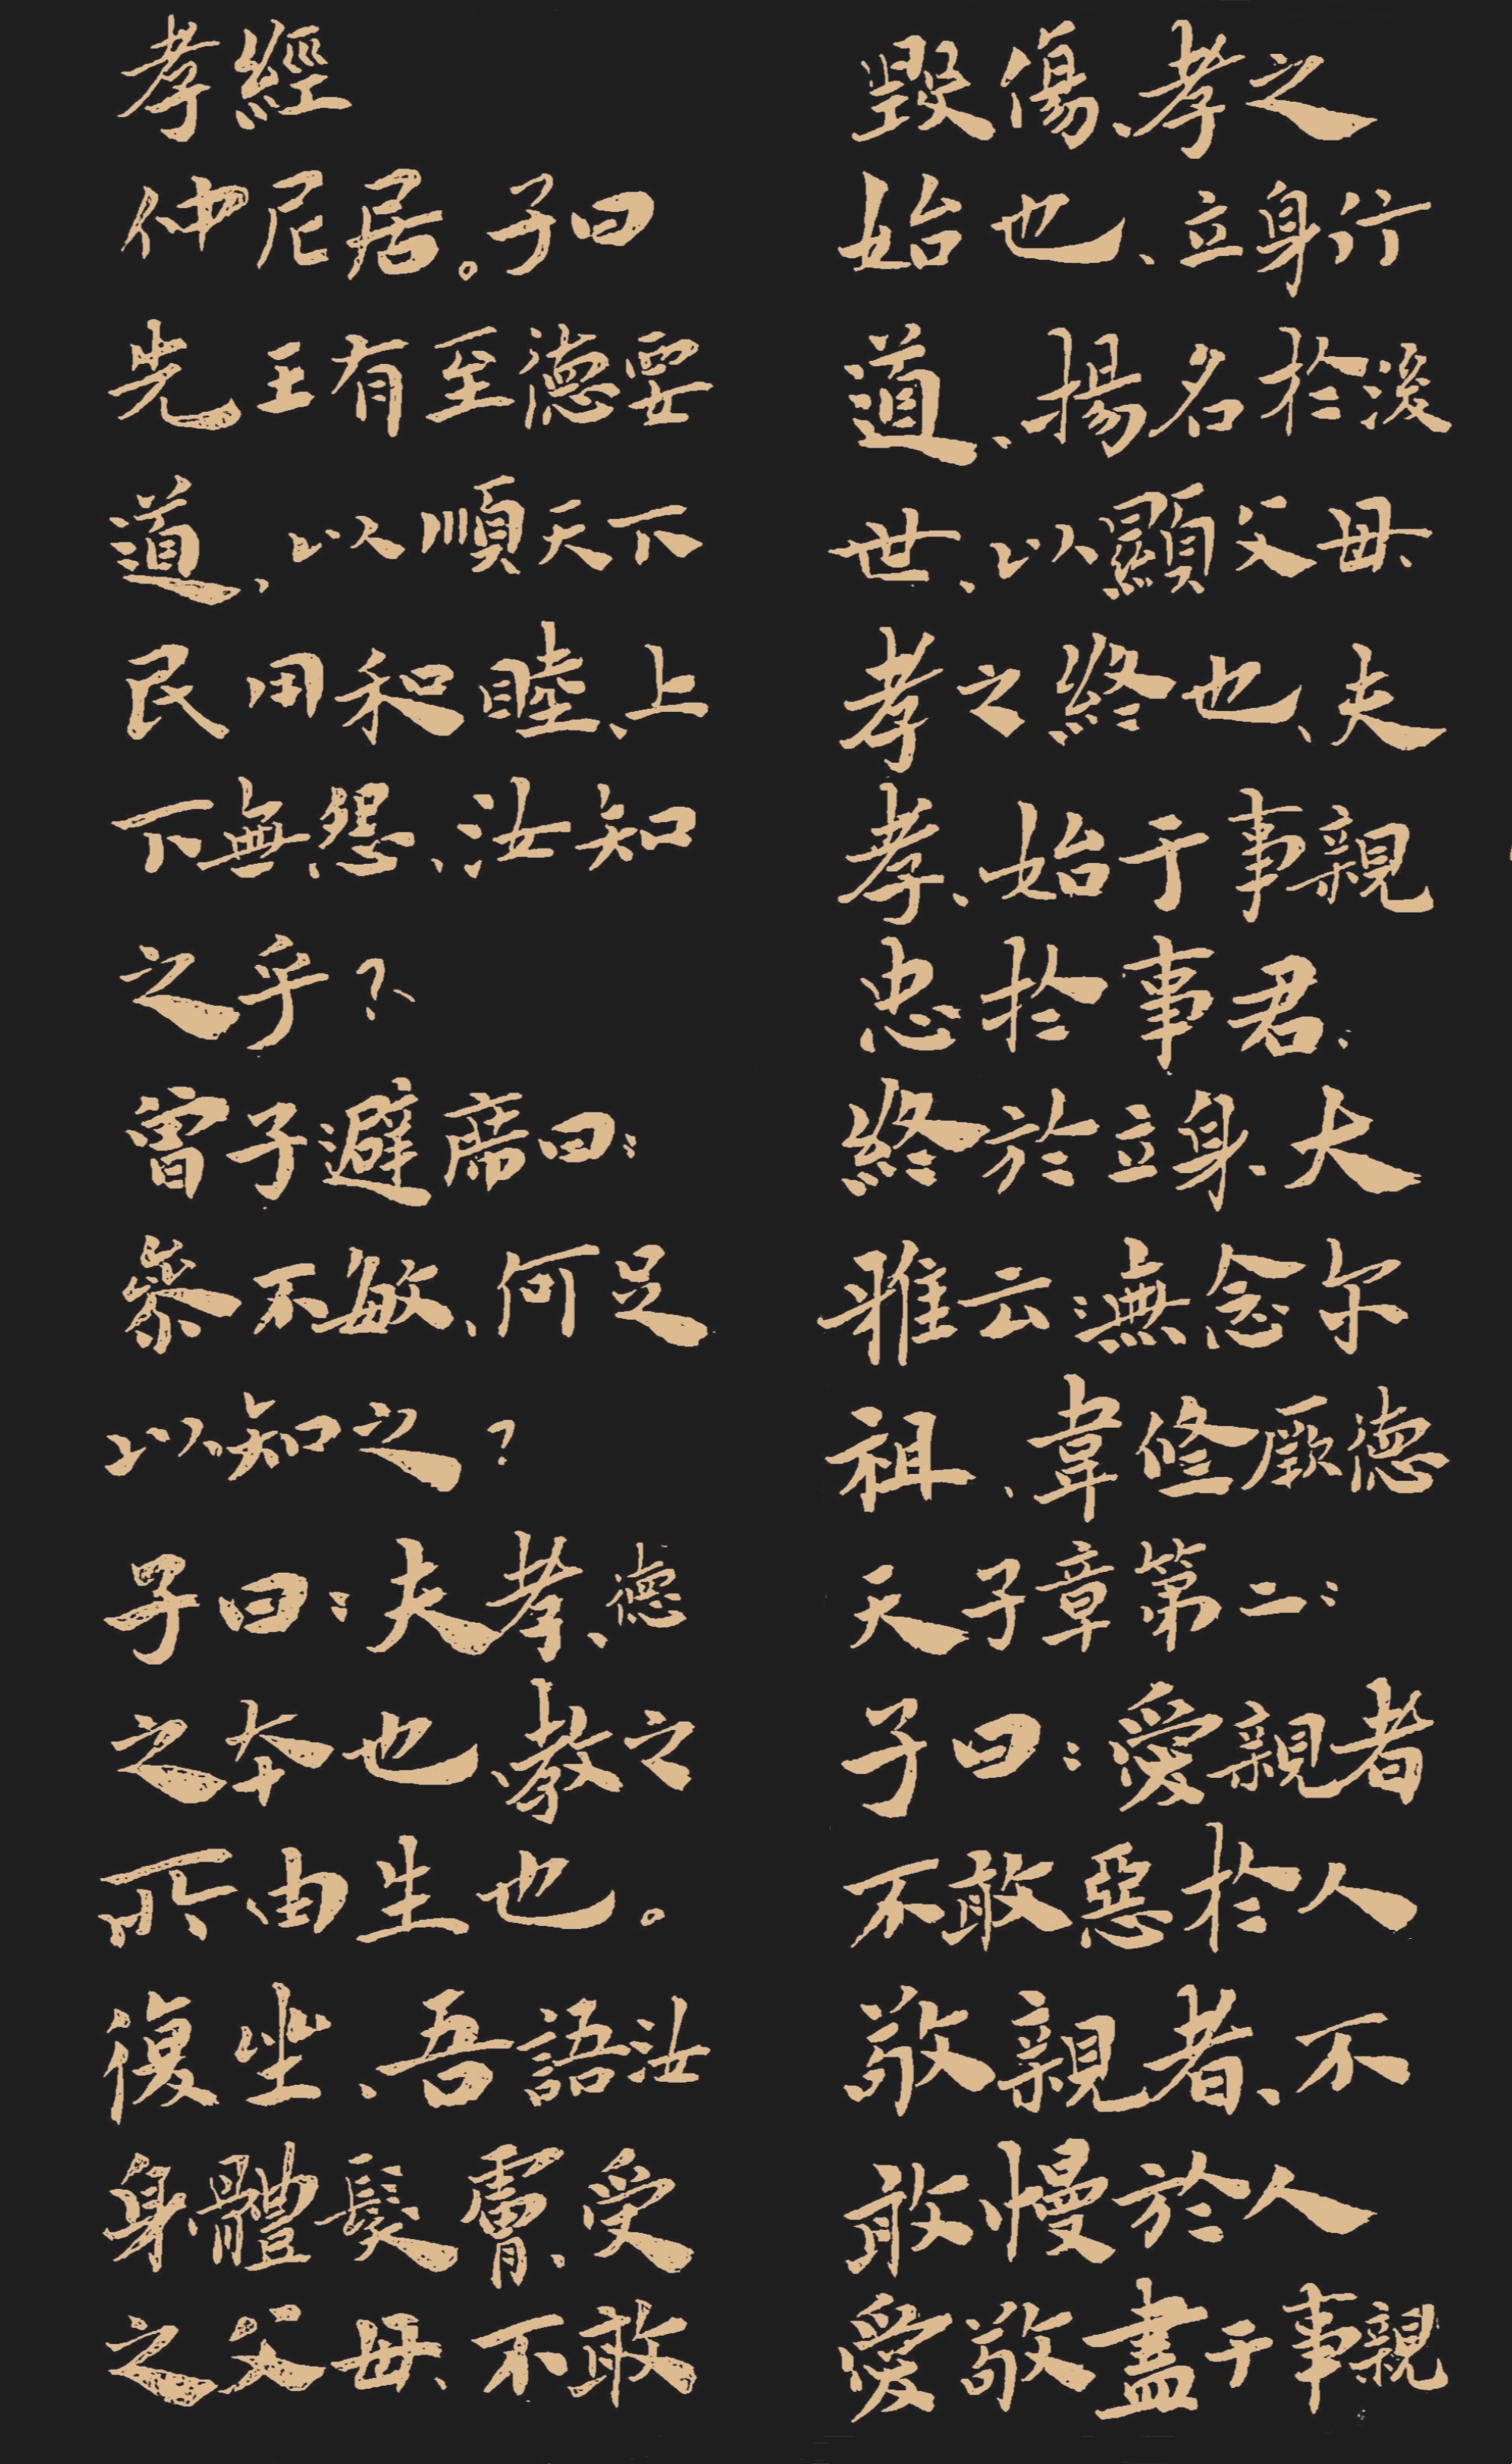 孝經
仲尼居。子曰
先王有至德要
道,以順天下
民用和睦、上
下無怨、汝知
之乎?
曾子避席曰:
參不敏、何足
以知之?
子曰:夫孝、德
之本也、教之
所由生也。
復坐、吾語汝
身體髮膚、受
之父母、不敢
毀傷、孝之
始也、立身行
道、揚名於後
世、以顯父母
孝之終也、夫
孝、始于事親
忠於事君、
終於立身、大
雅云無念尔
祖、聿修厥德
天子章第二:
子曰:愛親者
不敢惡於人
敬親者、不
敢慢於人
愛敬盡于事親